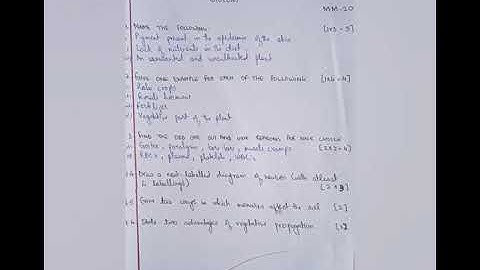 BIOLOGY
MM-20
1. NAME THE FOLLOWING: [1x3=3]
i. Pigment present in the epidermis of the skin
ii. Lack of nutrients in the diet
iii. An
and
plant
2. GIVE ONE EXAMPLE FOR EACH OF THE FOLLOWING: [1x4=4]
i. Rabi crops
ii. Female hormone
iii. Fertilizer
iv. Vegetative part of the plant
3. FIND THE ODD ONE OUT AND GIVE REASONS FOR YOUR CHOICE [2x2=4]
i. Goitre, paralysis, beri beri, muscle cramps
ii. RBCs, plasma, platelets, WBCs
4. Draw a neat labelled diagram of neuron (with atleast
4 labellings) [2+3]
5. Give two ways in which
affect the soil [2]
6. State two advantages of vegetative propagation